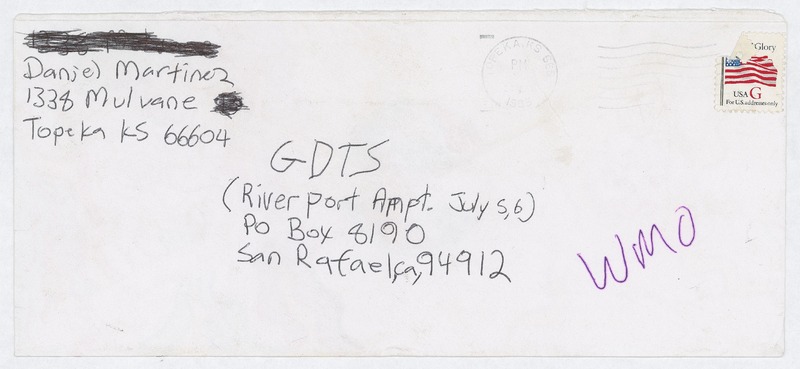 Daniel Martinez
1338 Mulvane
Topeka KS 66604
GDTS
(Riverport Ampt. July 5,6)
PO Box 8190
San Rafael,ca,94912
WMO
PM
Glory
USA G
For U.S. addresses only